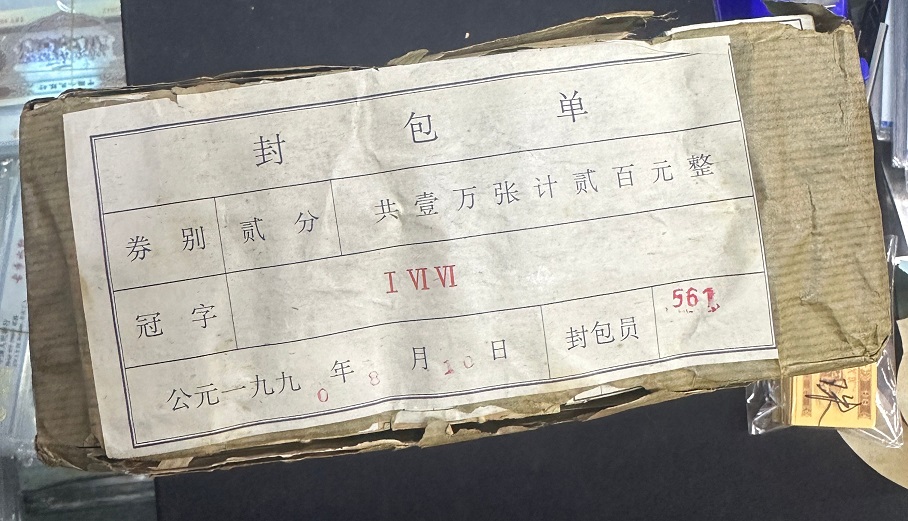 封包单
券别 贰分 共壹万张计贰百元整
冠字 ⅠⅥⅥ
公元一九九0年8月10日 封包员 561